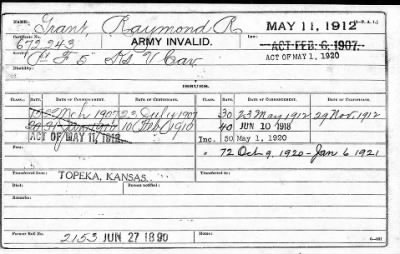 NAME, Grant, Raymond R. MAY 11, 1912
Certificate No. 672243 ARMY INVALID. Law: ACT FEB. 6, 1907.
F 5 Ks V Cav ACT OF MAY 1, 1920
Disability:
ISSUES.
CLASS. RATE. DATE OF COMMENCEMENT. DATE OF CERTIFICATE. CLASS. RATE. DATE OF COMMENCEMENT. DATE OF CERTIFICATE.
1907 23 July 1907 30 23 May 1912 29 Nov. 1912
10 Feb 1910 40 JUN 10 1918
ACT OF MAY 11, 1912. Inc. 50 May 1, 1920
72 Oct 9, 1920 - Jan 6 1921
Fees:
Transferred from TOPEKA, KANSAS. Transferred to:
Died: Person notified:
Remarks:
Former Roll No. 2153 JUN 27 1890